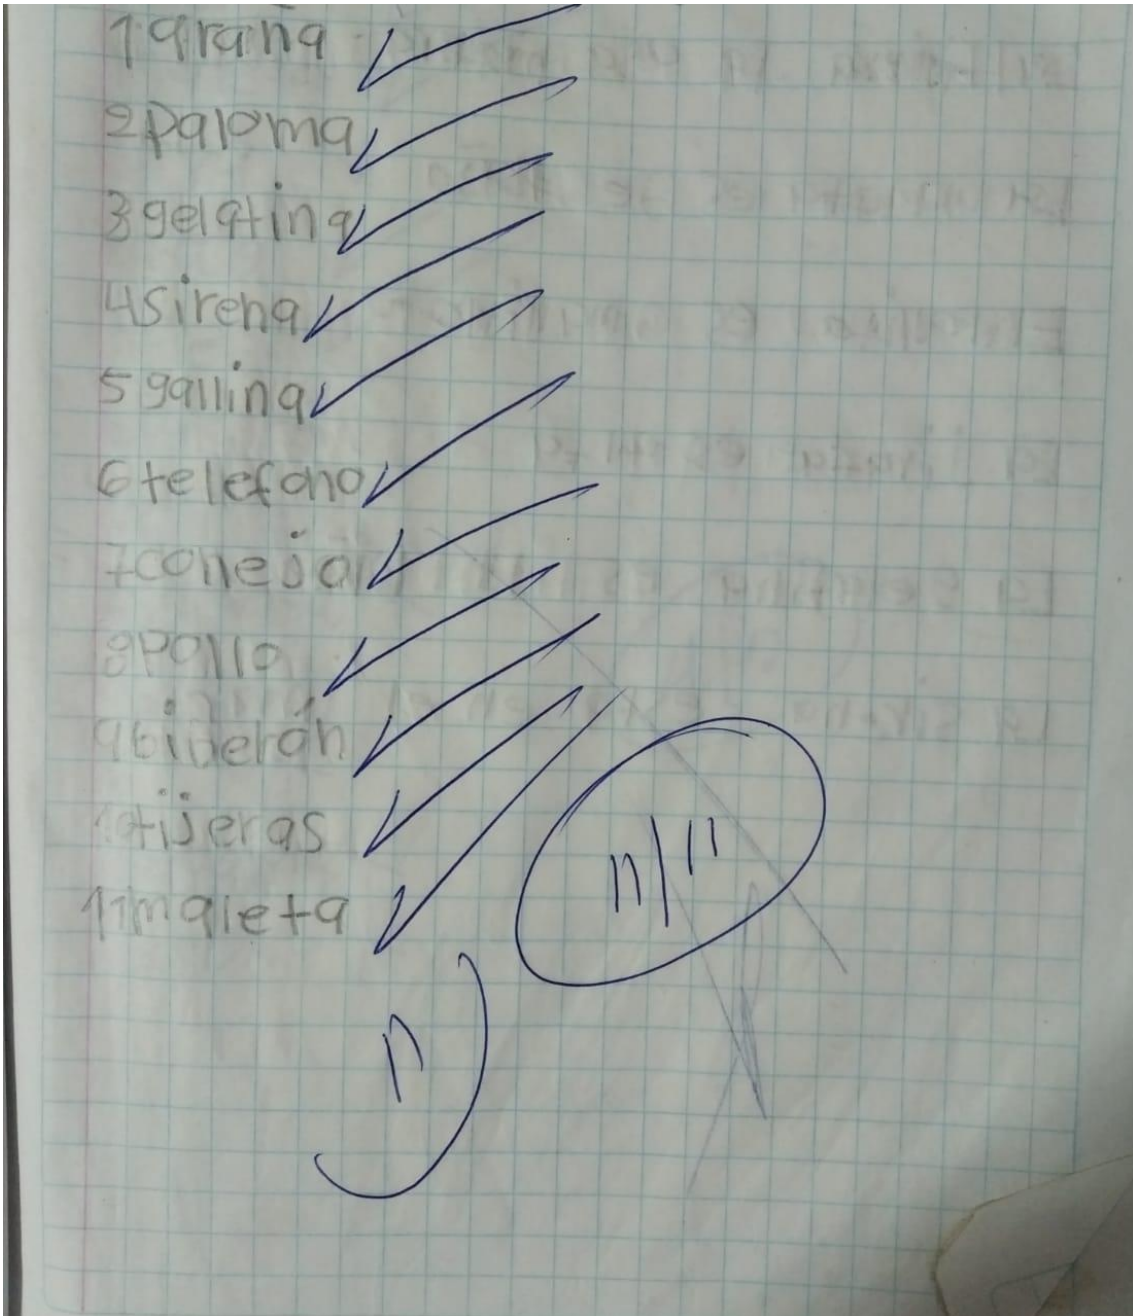 1 araña
2 paloma
3 gelatina
4 sirena
5 gallina
6 telefono
7 conejo
8 pollo
9 biberón
10 tijeras
11 maleta
11/11
11